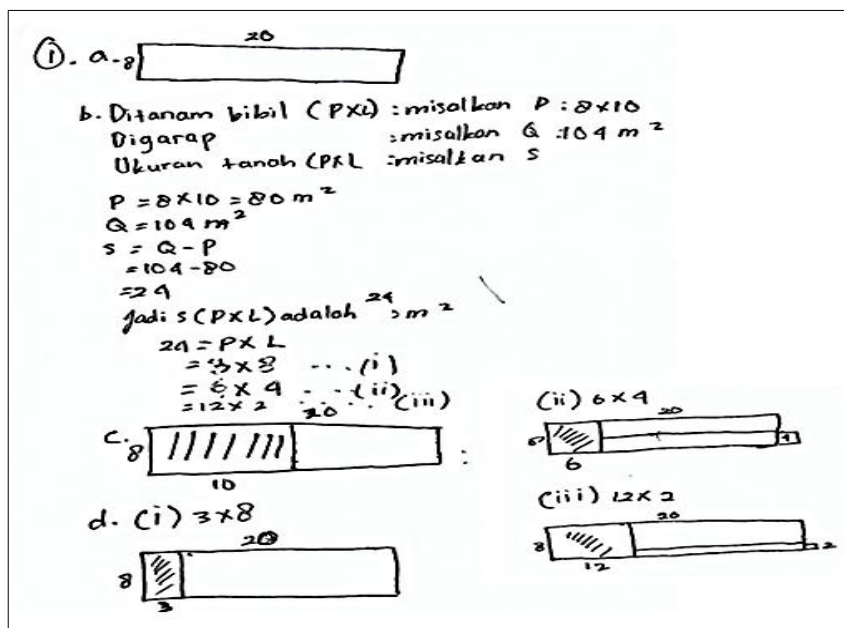 20
①. a. 8
b. Ditanam bibil (PXL) : misalkan P : 8x10
Digarap : misalkan Q : 104 m²
Ukuran tanah (PXL : misalkan S
P = 8 x 10 = 80 m²
Q = 104 m²
S = Q - P
= 104 - 80
= 24
Jadi S (PXL) adalah 24 m²
24 = P X L
= 3 x 8 ... (i)
= 6 x 4 ... (ii)
= 12 x 2 ... (iii)
20
c. 8
10
d. (i) 3x8
20
8
3
(ii) 6 x 4
20
6
4
(iii) 12 x 2
20
8
2
12